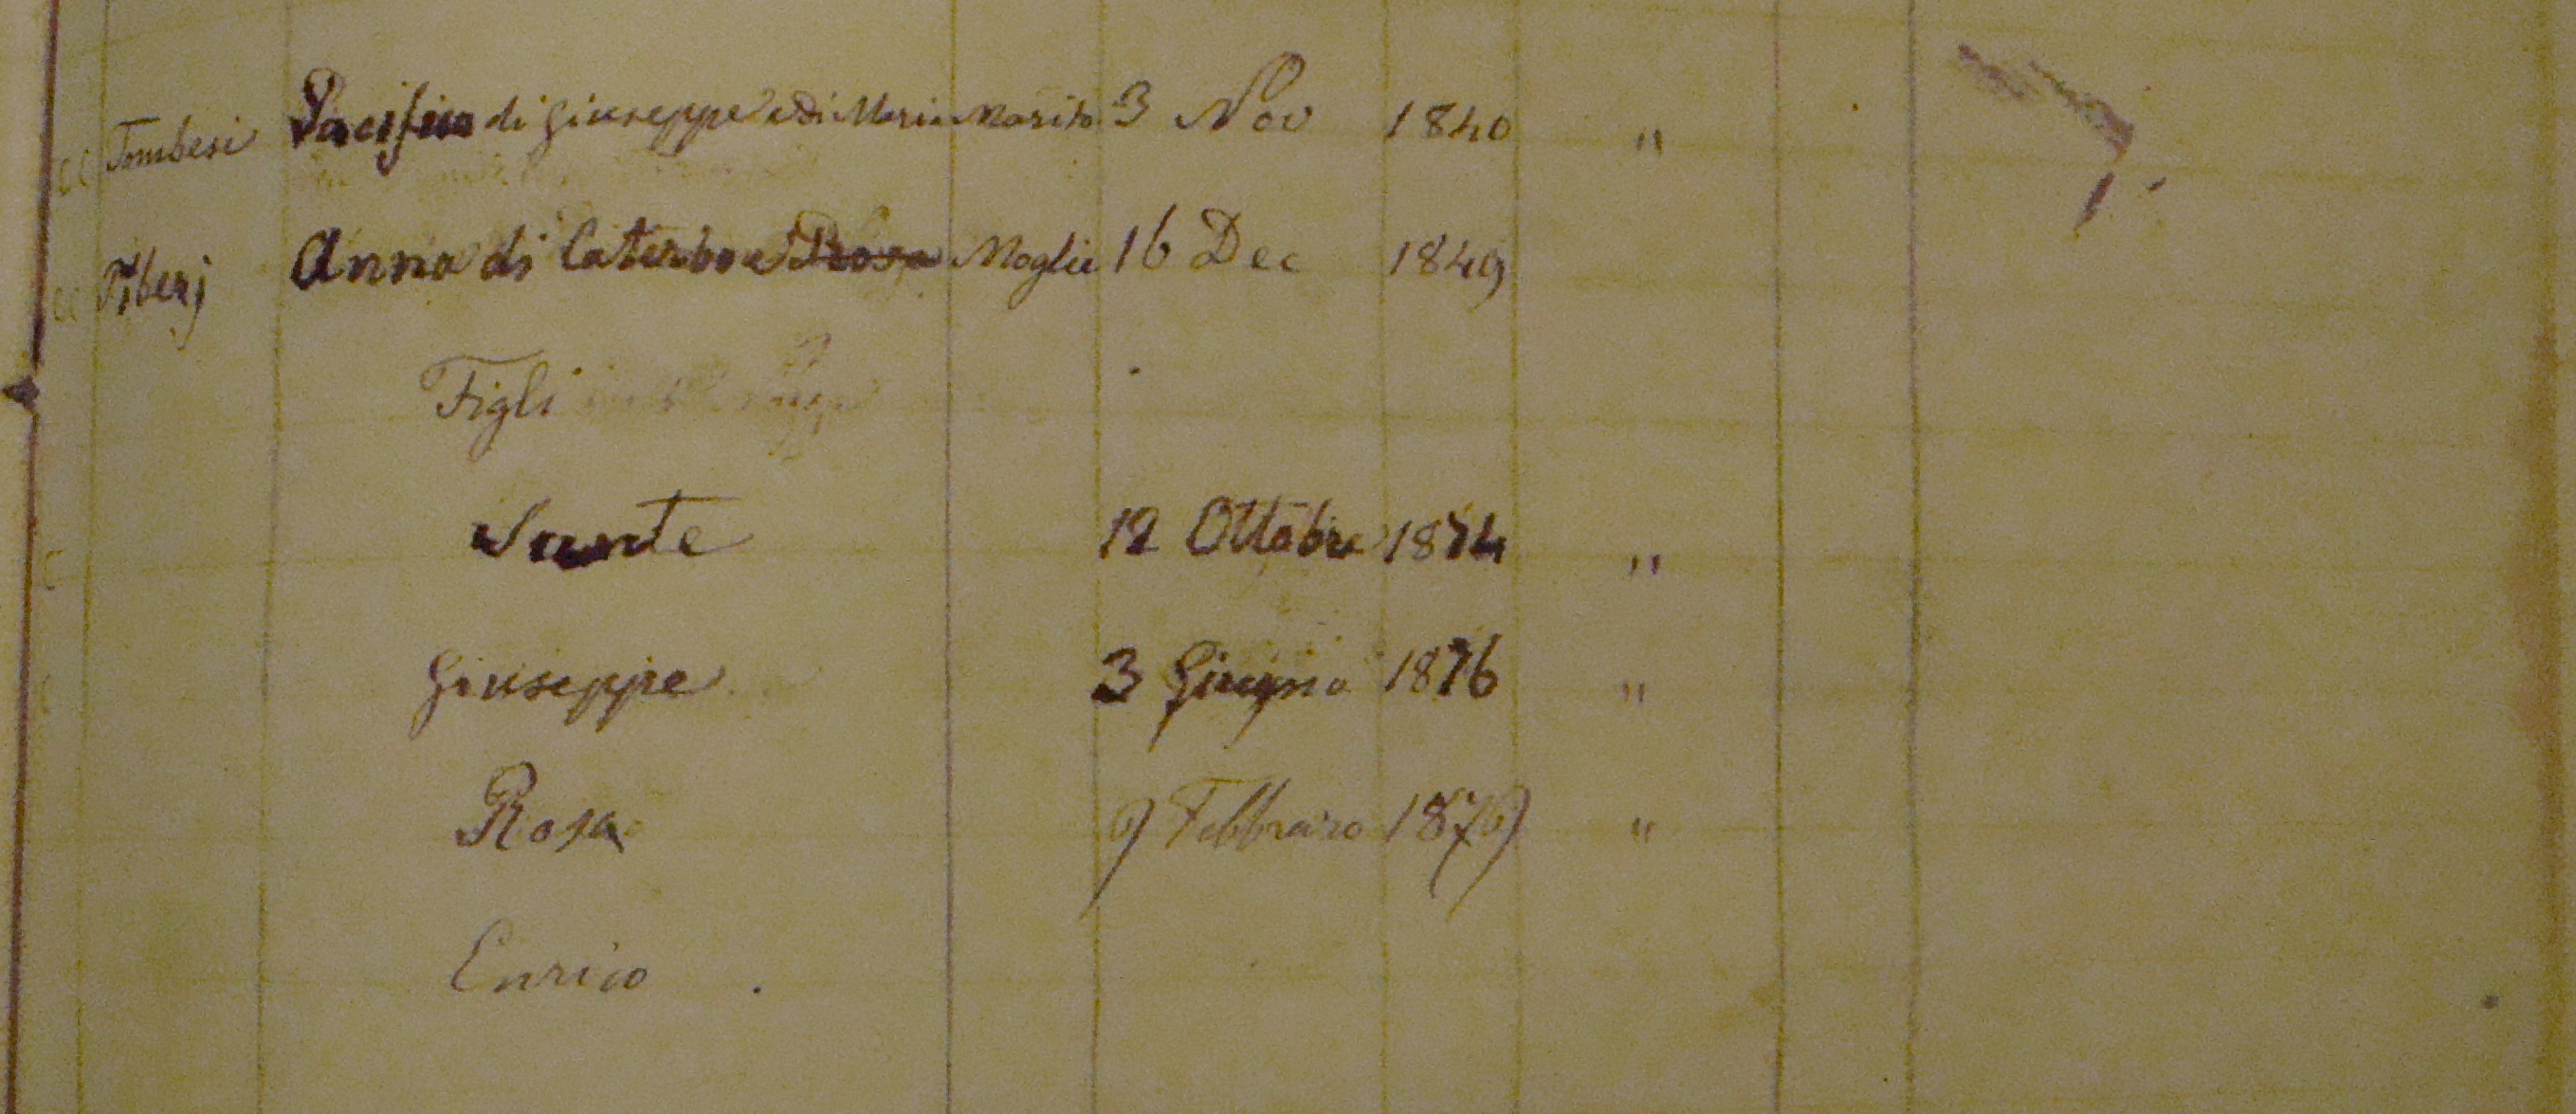 " Tombesi Pacifico di Giuseppe e di Maria Marito 3 Nov 1840 "
" Tiberj Anna di Caterbo e Rosa Moglie 16 Dec 1849
Figli
Sante 12 Ottobre 1874 "
Giuseppe 3 Giugno 1876 "
Rosa 9 Febbraro 1879 "
Enrico .